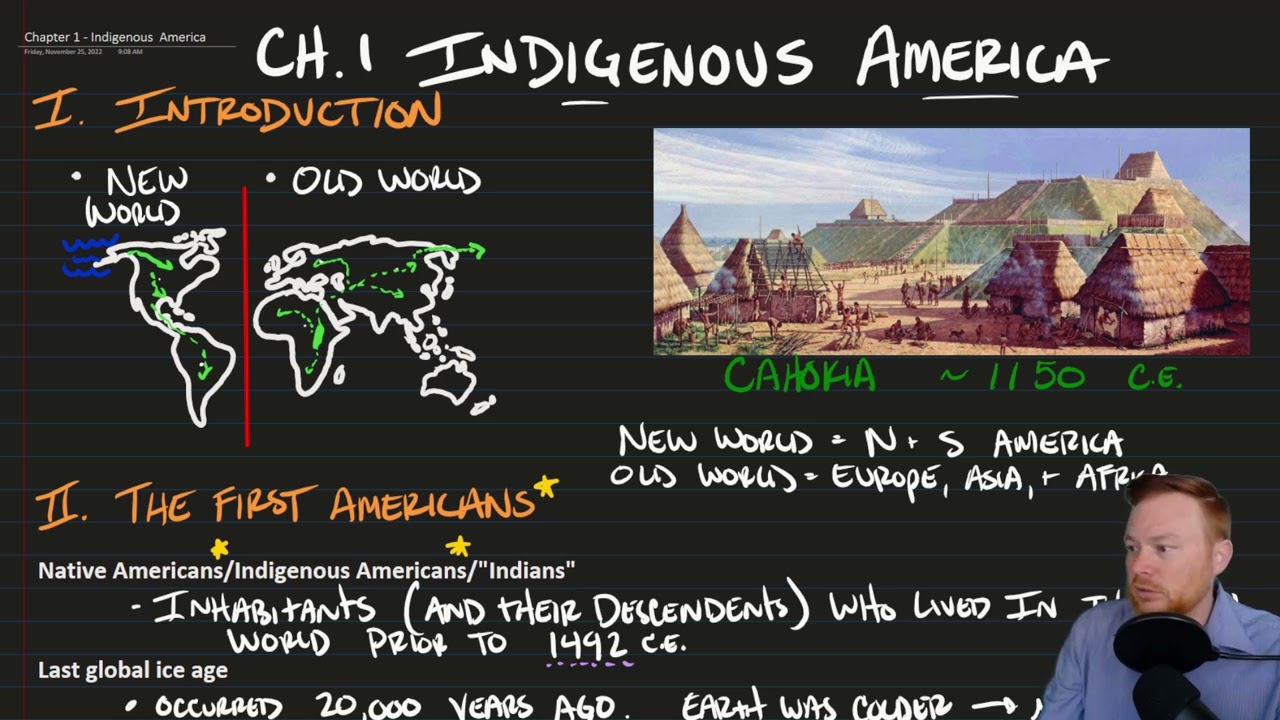 Chapter 1 - Indigenous America
Friday, November 25, 2022 9:08 AM
CH. 1 INDIGENOUS AMERICA
I. INTRODUCTION
• NEW WORLD
• OLD WORLD
CAHOKIA ~ 1150 C.E.
NEW WORLD = N + S AMERICA
OLD WORLD = EUROPE, ASIA, + AFRICA
II. THE FIRST AMERICANS*
Native Americans/Indigenous Americans/"Indians"
- INHABITANTS (AND THEIR DESCENDENTS) WHO LIVED IN
WORLD PRIOR TO 1492 C.E.
Last global ice age
• OCCURRED 20,000 YEARS AGO. EARTH WAS COLDER →